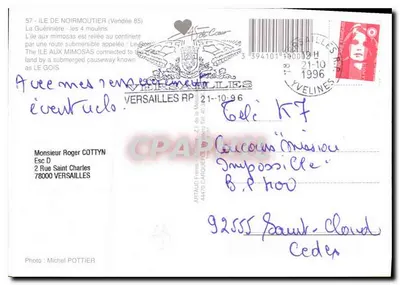 57 - ILE DE NOIRMOUTIER (Vendée 85)
La Guérinière : les 4 moulins
L'île aux mimosas est reliée au continent
par une route submersible appelée : Le Gois.
The ILE AUX MIMOSAS connected to the
land by a submerged causeway known
as LE GOIS.
Avec mes remerciements
éventuels.
VERSAILLES
VERSAILLES RP 21-10-96
3 394101
VERSAILLES
21-10
1996
YVELINES
Télé K7
Concours "Mission
Impossible"
B.P.
92555 Saint-Cloud
Cedex
Monsieur Roger COTTYN
Esc D
2 Rue Saint Charles
78000 VERSAILLES
Photo : Michel POTTIER